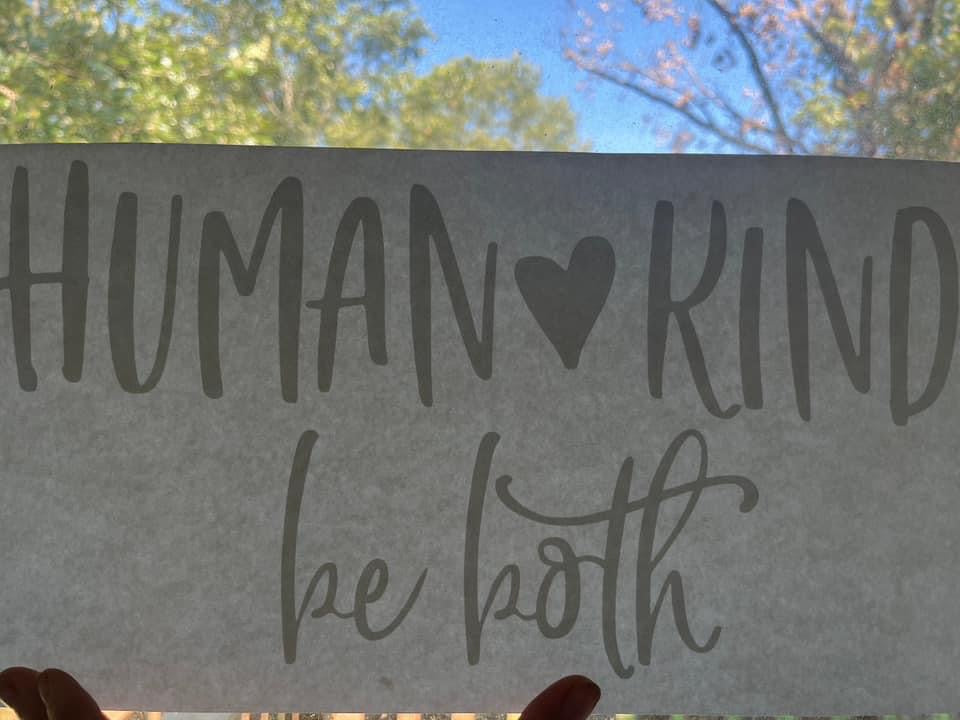 HUMAN♥KIND
be both